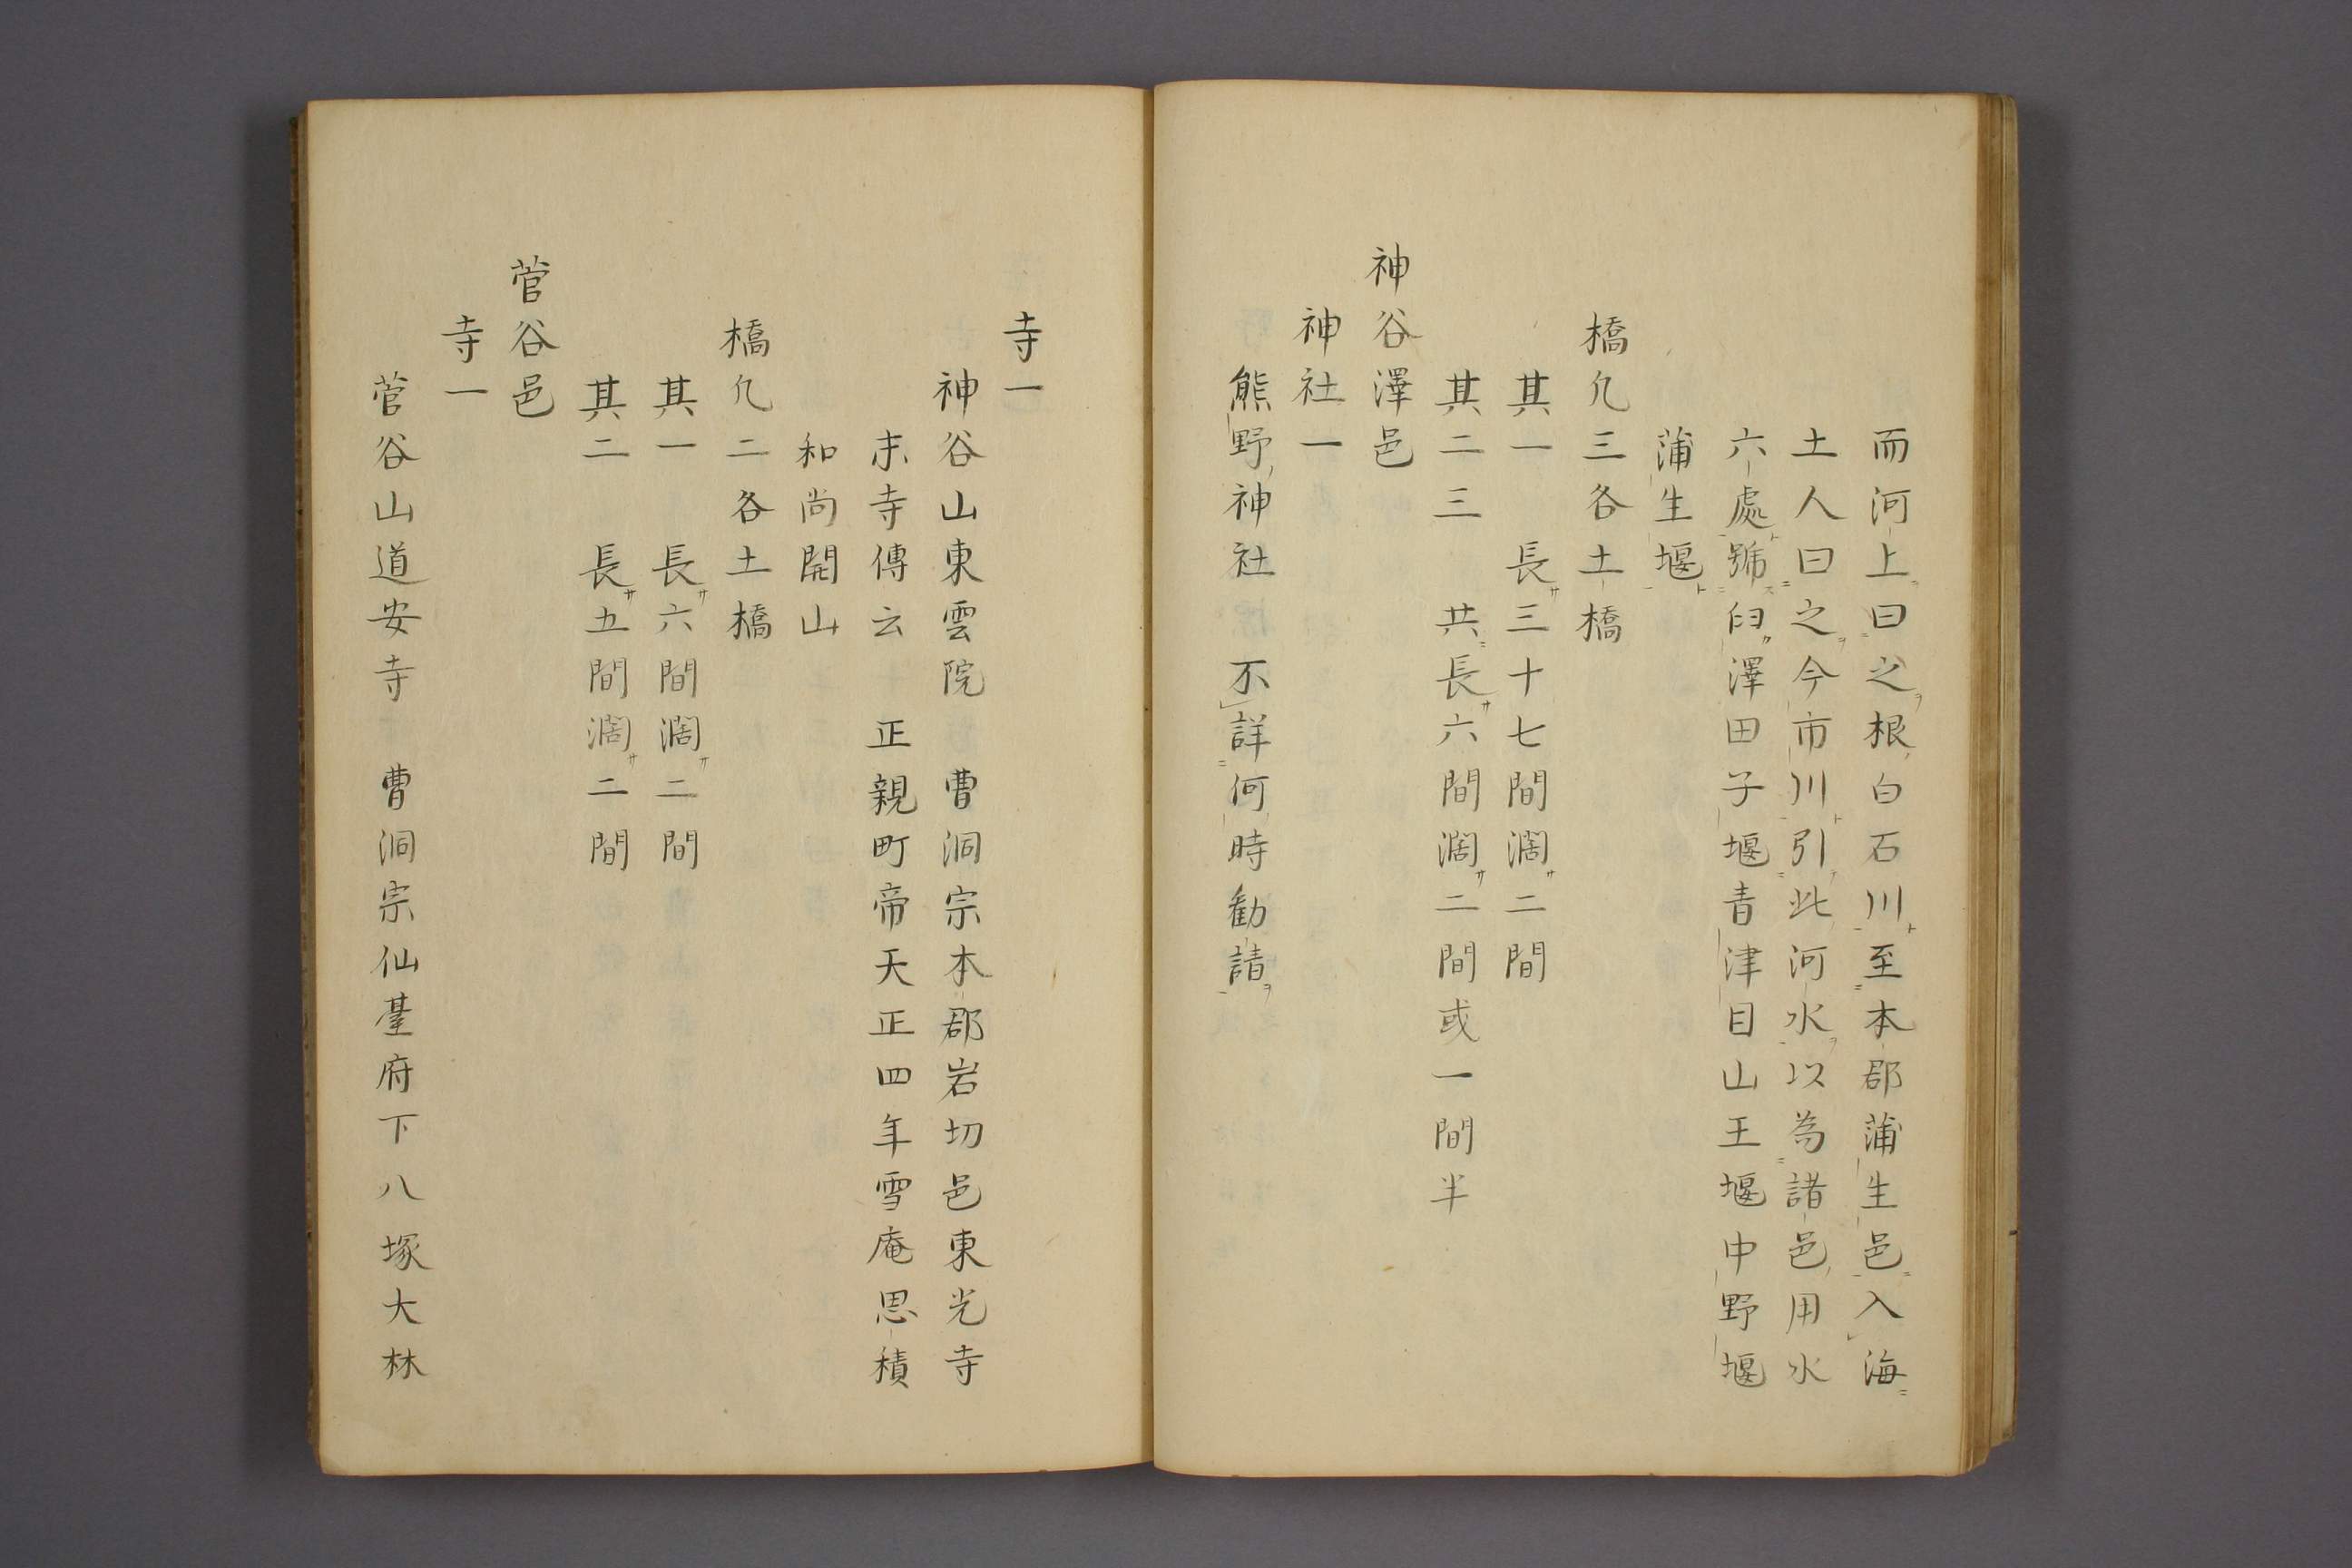 而河上曰之根白石川至本郡蒲生邑入海
土人曰之今市川引此河水以為諸邑用水
六處號臼澤田子堰青津目山王堰中野堰
蒲生堰
橋凡三各土橋
其一　長三十七間濶二間
其二三　共長六間濶二間或一間半
神谷澤邑
神社一
熊野神社　不詳何時勧請
寺一
神谷山東雲院　曹洞宗本郡岩切邑東光寺
末寺傳云　正親町帝天正四年雪庵思積
和尚開山
橋凡二各土橋
其一　長六間濶二間
其二　長五間濶二間
菅谷邑
寺一
菅谷山道安寺　曹洞宗仙臺府下八塚大林